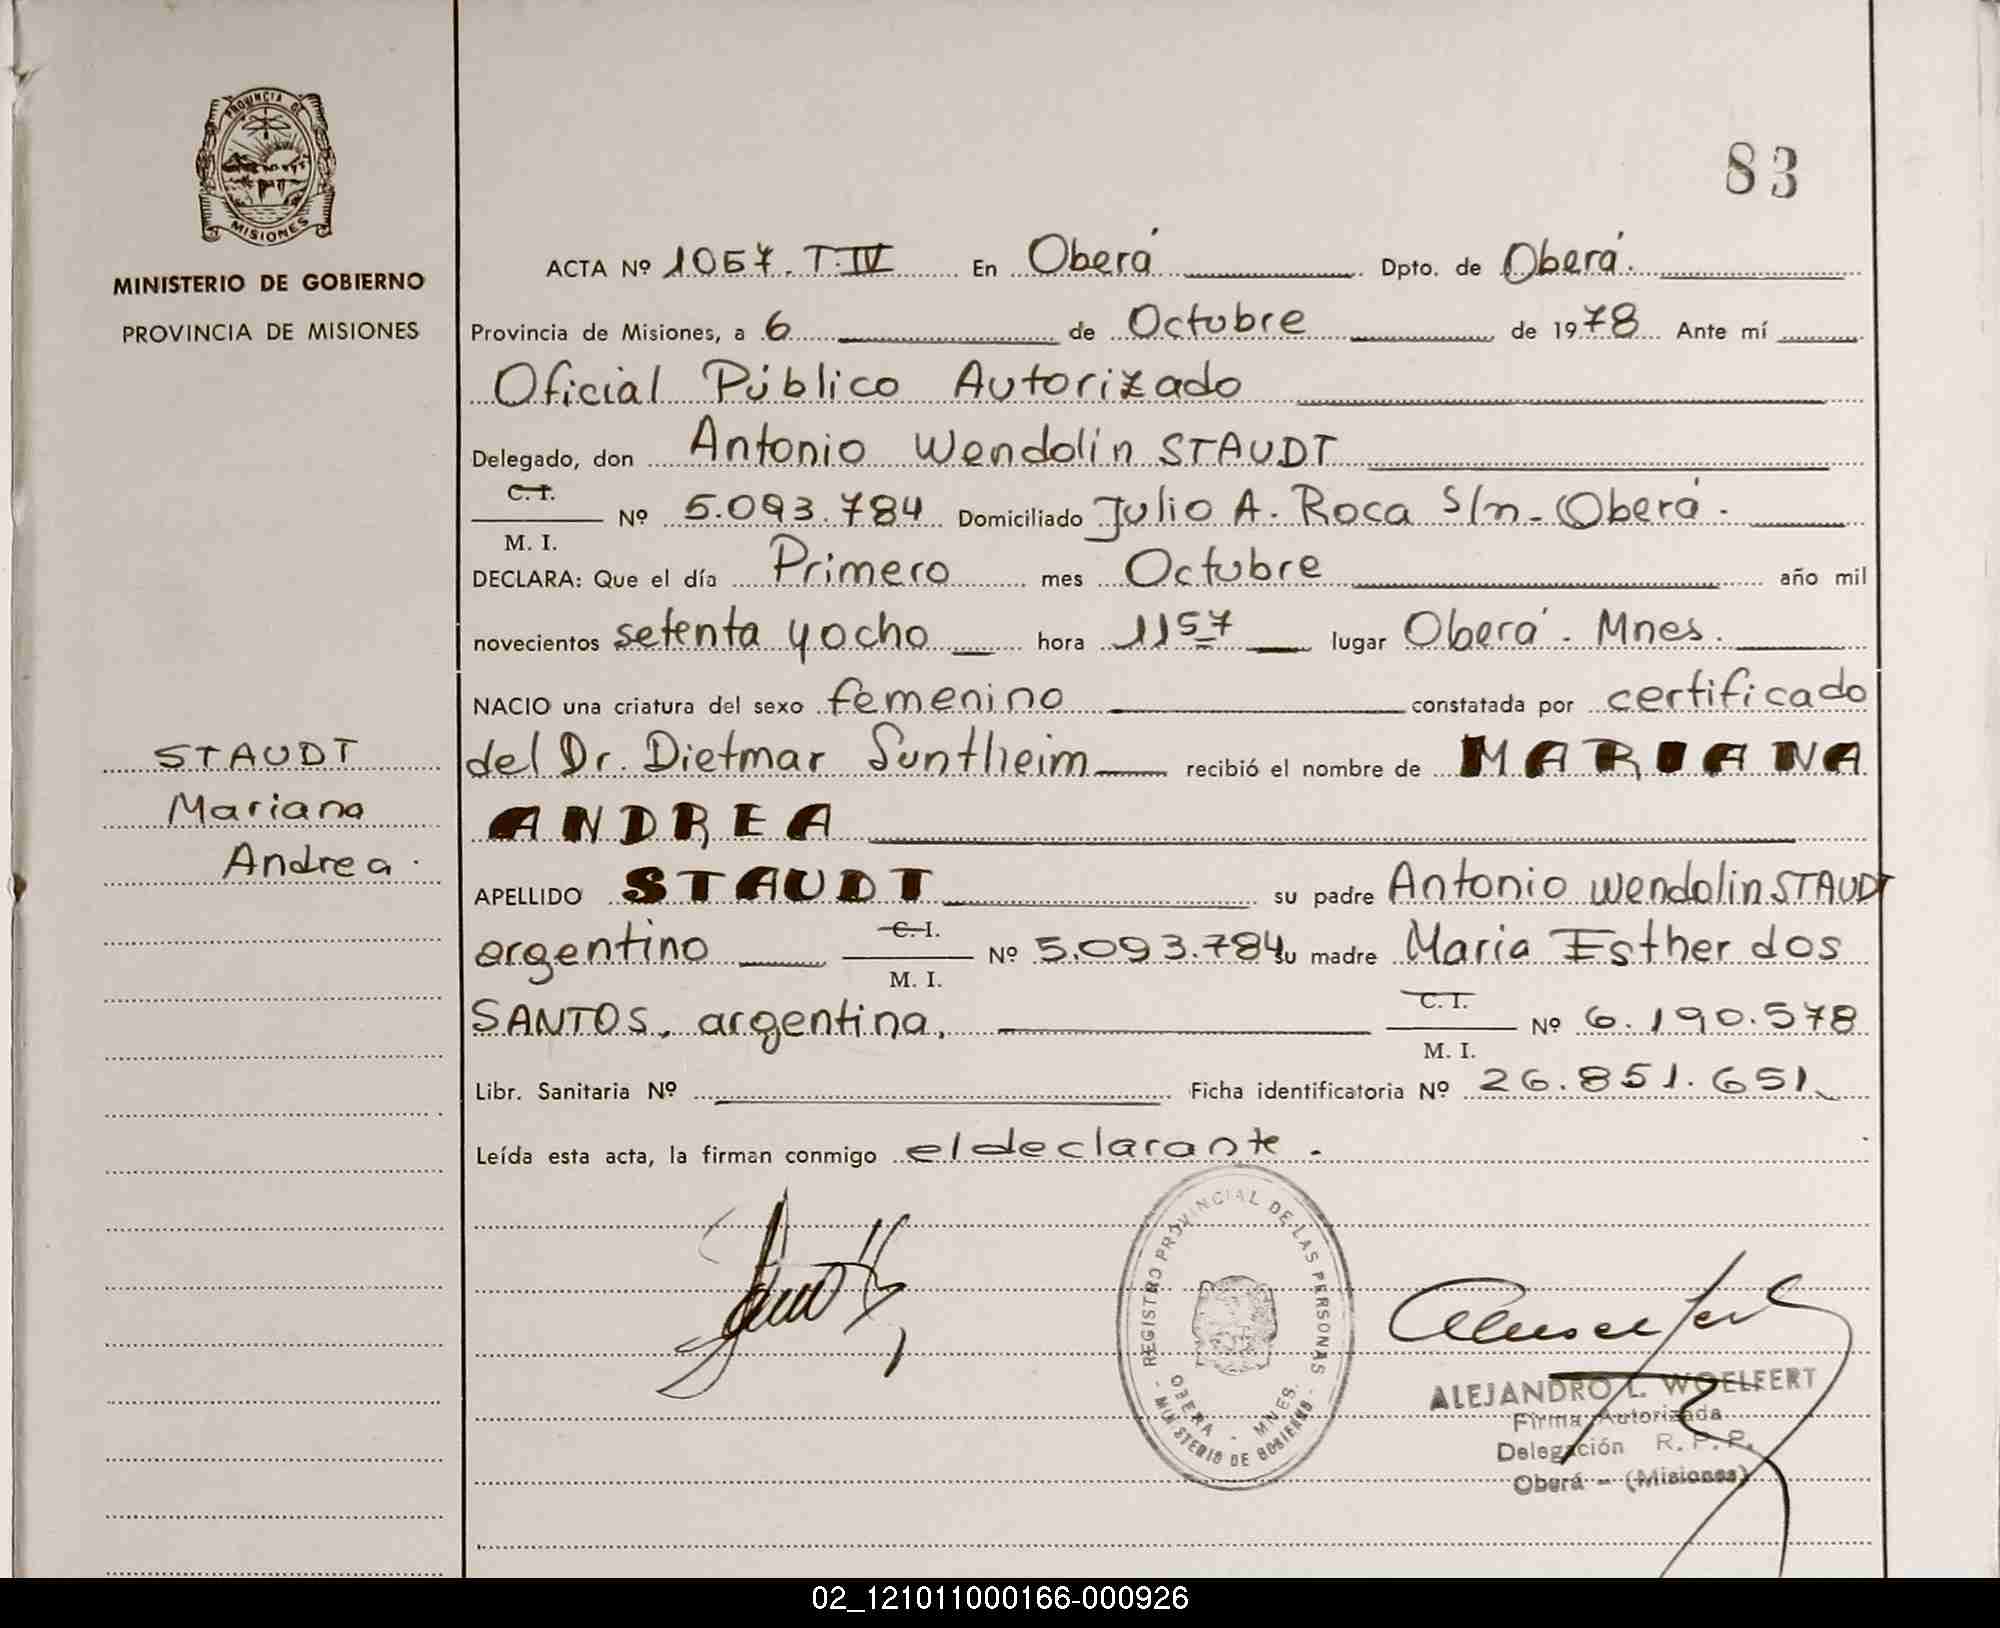 PROVINCIA DE
MISIONES
MINISTERIO DE GOBIERNO
PROVINCIA DE MISIONES
83
ACTA Nº 1057. T. IV En Oberá Dpto. de Oberá.
Provincia de Misiones, a 6 de Octubre de 1978 Ante mí
Oficial Público Autorizado
Delegado, don Antonio Wendolin STAUDT
C. I.
M. I. Nº 5.093.784 Domiciliado Julio A. Roca s/n - Oberá.
DECLARA: Que el día Primero mes Octubre año mil
novecientos setenta y ocho hora 11 57 lugar Oberá. Mnes.
NACIO una criatura del sexo femenino constatada por certificado
del Dr. Dietmar Suntheim recibió el nombre de MARIANA
ANDREA
APELLIDO STAUDT su padre Antonio Wendolin STAUDT
argentino C. I. M. I. Nº 5.093.784 su madre Maria Esther dos
SANTOS, argentina, C. I. M. I. Nº 6.190.578
Libr. Sanitaria Nº Ficha identificatoria Nº 26.851.651
Leída esta acta, la firman conmigo el declarante.
STAUDT
Mariana
Andrea.
REGISTRO PROVINCIAL DE LAS PERSONAS
OBERA - MNES.
- MINISTERIO DE GOBIERNO -
ALEJANDRO L. WOELFERT
Firma Autorizada
Delegación R. P. P.
Oberá - (Misiones)
02_121011000166-000926